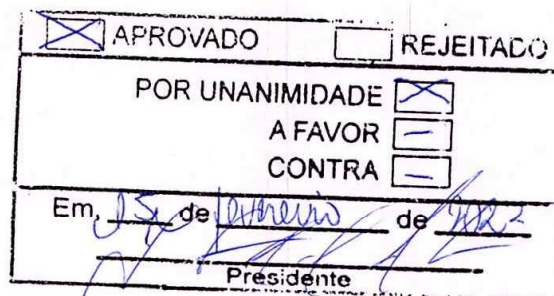 APROVADO REJEITADO
POR UNANIMIDADE
A FAVOR -
CONTRA -
Em, de fevereiro de
Presidente